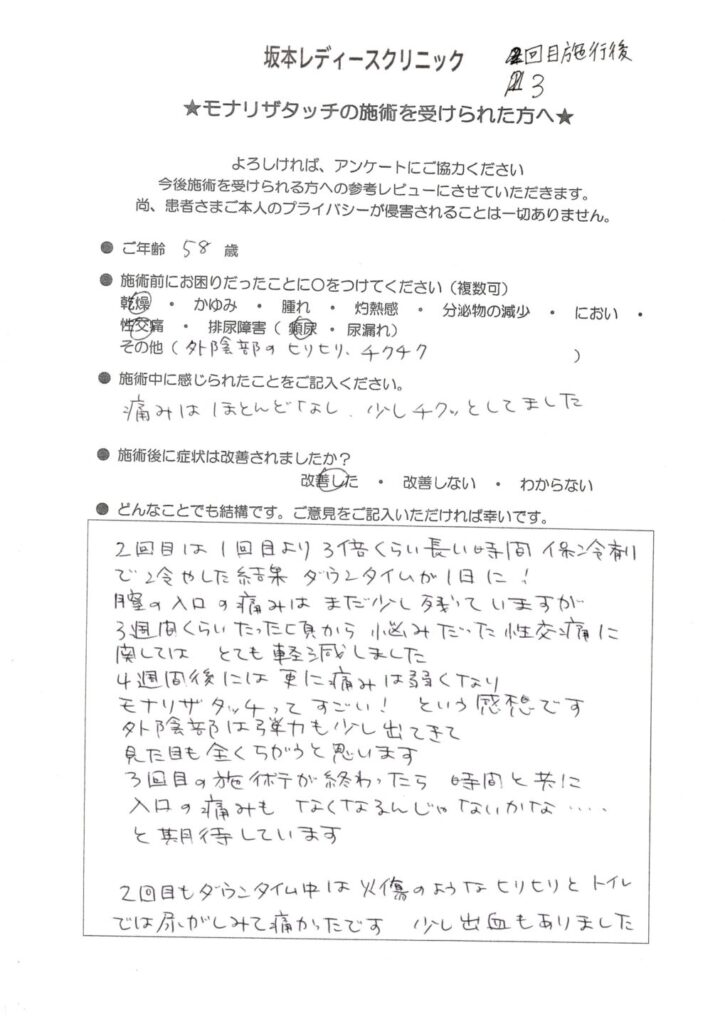 坂本レディースクリニック
2回目施行後
3
★モナリザタッチの施術を受けられた方へ★
よろしければ、アンケートにご協力ください
今後施術を受けられる方への参考レビューにさせていただきます。
尚、患者さまご本人のプライバシーが侵害されることは一切ありません。
● ご年齢 58 歳
● 施術前にお困りだったことに○をつけてください（複数可）
乾燥 ・ かゆみ ・ 腫れ ・ 灼熱感 ・ 分泌物の減少 ・ におい ・
性交痛 ・ 排尿障害（ 頻尿 ・ 尿漏れ）
その他（ 外陰部のヒリヒリ、チクチク ）
● 施術中に感じられたことをご記入ください。
痛みはほとんどなし、少しチクッとしてました
● 施術後に症状は改善されましたか？
改善した ・ 改善しない ・ わからない
● どんなことでも結構です。ご意見をご記入いただければ幸いです。
2回目は1回目より3倍くらい長い時間 保冷剤
で冷やした結果 ダウンタイムが1日に！
膣の入口の痛みは まだ少し残っていますが
3週間くらいたった頃から 悩みだった性交痛に
関しては とても軽減しました
4週間後には 更に痛みは弱くなり
モナリザタッチって すごい！ という感想です
外陰部は弾力も少し出てきて
見た目も全くちがうと思います
3回目の施術が終わったら 時間と共に
入口の痛みも なくなるんじゃないかな・・・・
と期待しています
2回目もダウンタイム中は火傷のようなヒリヒリと トイレ
では尿がしみて痛かったです 少し出血もありました